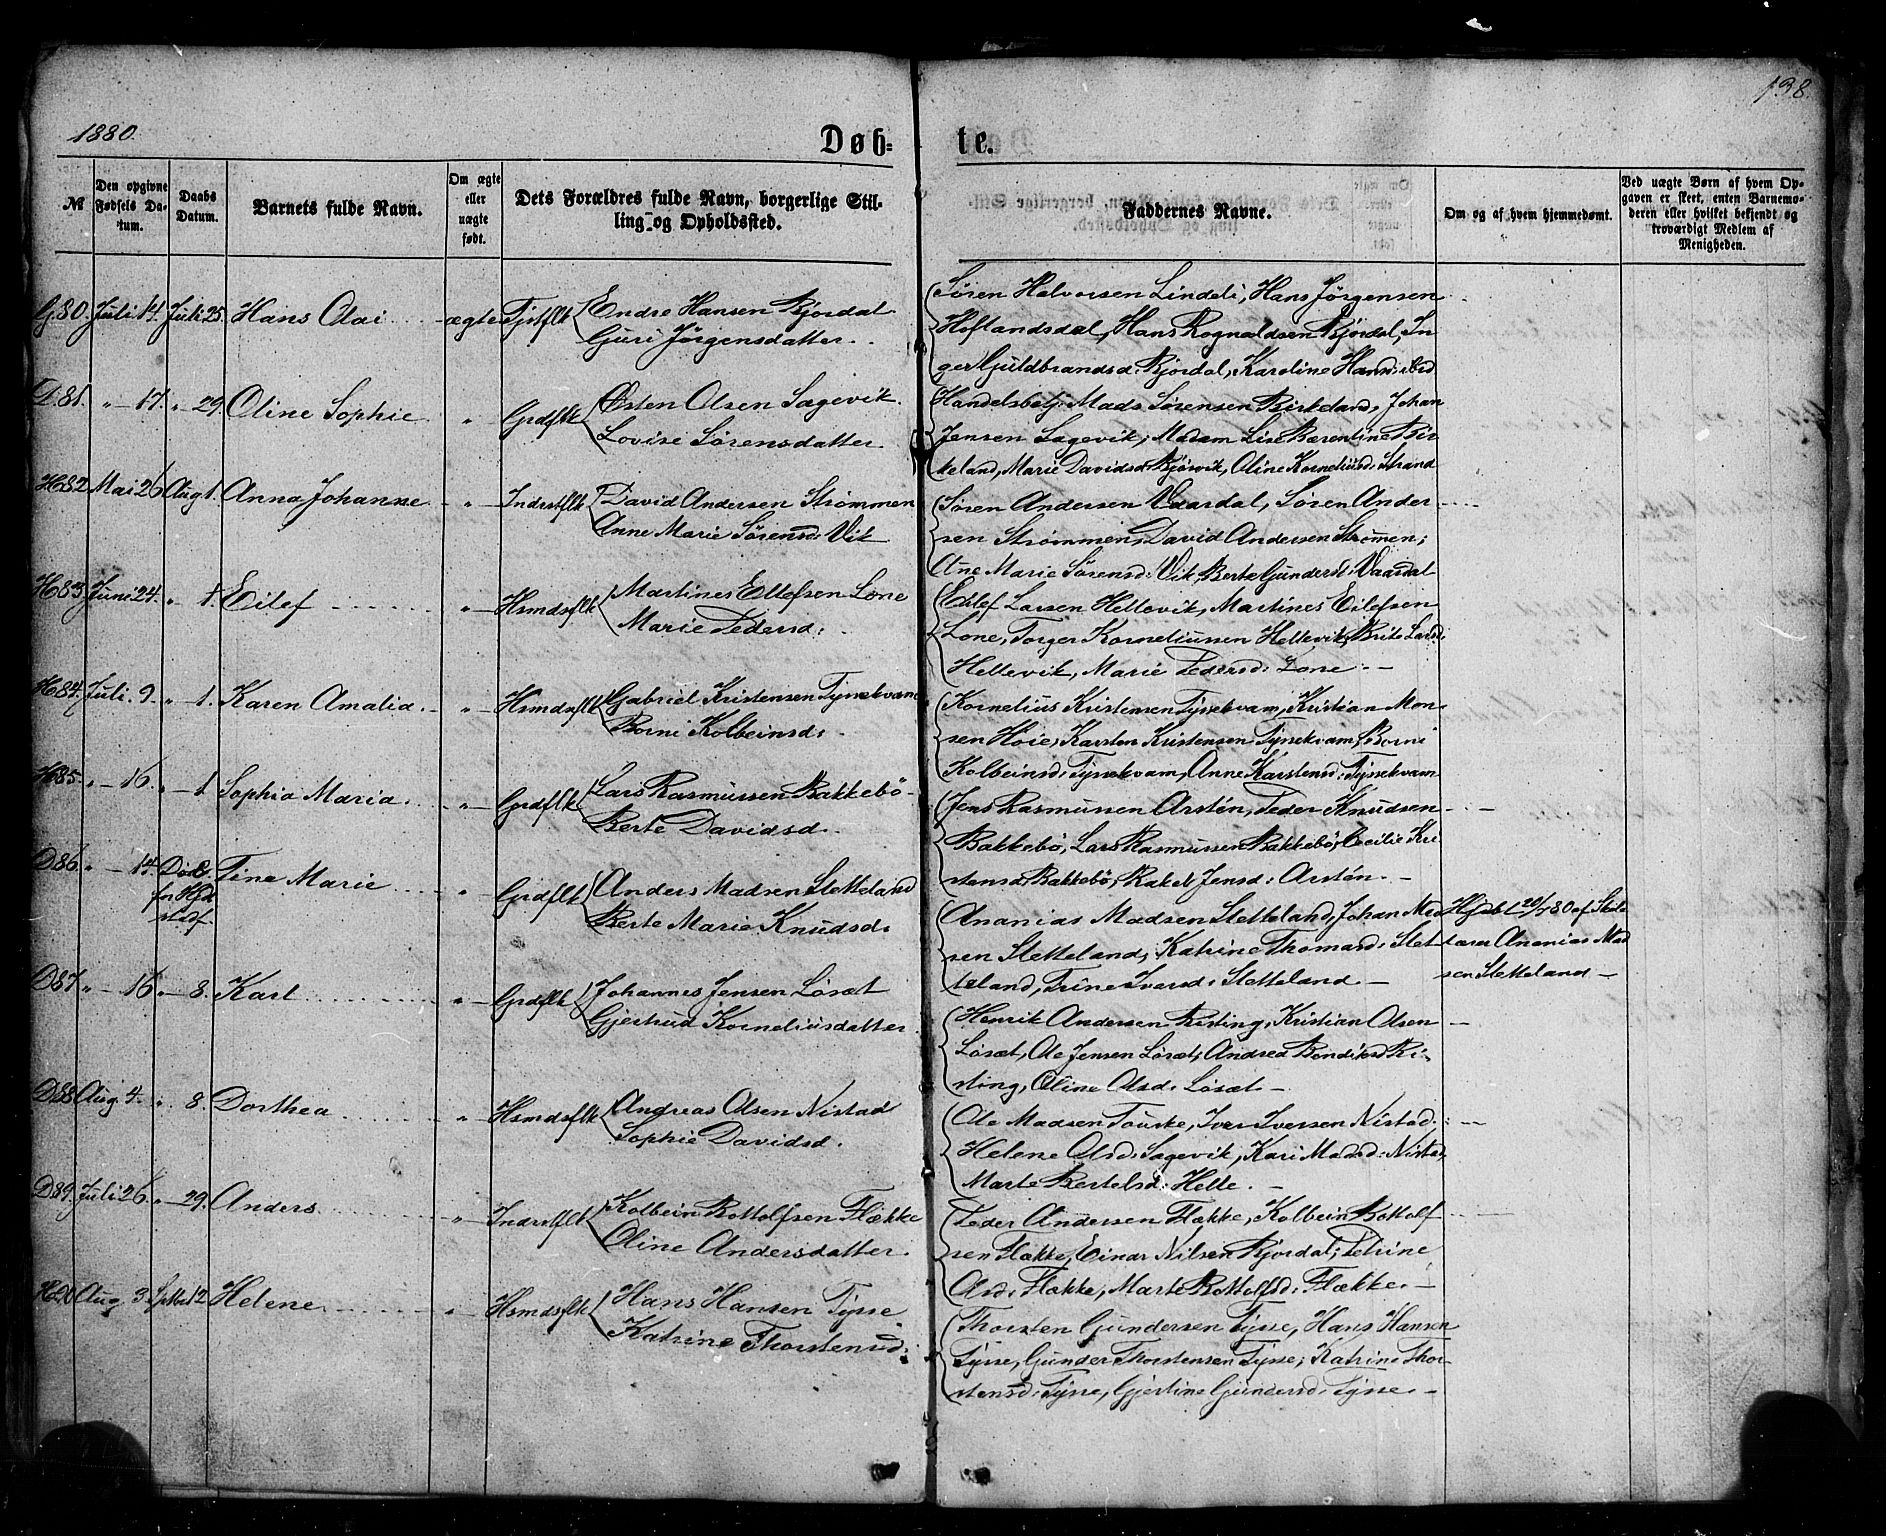 138.
1880.
Døb=
te.
№
Den opgivne Fødsels Datum.
Daabs Datum.
Barnets fulde Navn.
Om ægte eller uægte født.
Dets Forældres fulde Navn, borgerlige Stilling og Opholdssted.
Faddernes Navne.
Om og af hvem hjemmedømt.
Ved uægte Børn af hvem Opgaven er skeet, enten Barnemoderen eller hvilket bekjendt og troværdigt Medlem af Menigheden.
G. 80. Juli 14. Juli 25. Hans Olai ægte Gjstflk Endre Hansen Bjordal
Guri Jörgensdatter.
Sören Halvorsen Lindeli, Hans Jörgensen
Hoflandsdal, Hans Rognaldsen Bjordal, In
ger Guldbrandsd: Bjordal, Karoline Hansd: ibd
D. 81. " — 17. " 29. Oline Sophie " Grdflk Østen Olsen Sagevik.
Lovise Sörensdatter
Handelsbetj: Mads Sörensen Birkeland, Johan
Jensen Sagevik, Madam Lise Berentine Bir
keland, Marie Davidsd: Bjorvik, Oline Korneliusd: Strand
H 82 Mai 26 Aug 1. Anna Johanne " Indrstflk David Andersen Strömmen
Anne Marie Sörensd: Vik
Sören Andersen Vaardal, Sören Ander
sen Strömmen, David Andersen Strömen;
Ane Marie Sörensd: Vik, Berte Gundersd: Vaardal
H 83. Juni 24. " 1. Eilef " Hsmdsflk Martines Ellefsen Lone
Marie Pedersd:
Eilef Larsen Hellevik, Martines Eilefsen
Lone, Torger Korneliussen Hellevik, Brite Larsd:
Hellevik, Marie Pedersd: Lone. —
H 84. Juli 9. " — 1. Karen Amalia. " Hsmdsflk Gabriel Kristensen Tynekvam
Borni Kolbeinsd:
Kornelius Kristensen Tysekvam, Kristian Mon
sen Höie, Karsten Kristensen Tysekvam, Borni
Kolbeinsd: Tysekvam, Anne Karstensd: Tysekvam
H 85. " — 16. " — 1 Sophia Maria. " Grdflk Lars Rasmussen Bakkebö
Berte Davidsd.
Jens Rasmussen Arstön, Peder Knudsen
Bakkebö, Lars Rasmussen Bakkebö, Cecilie Kri
stensd: Bakkebö, Rakel Jensd: Arstön. —
D 86. " — 14. Död
för Hfd
stadf. Tine Marie " Grdflk Anders Madsen Sletteland
Berte Marie Knudsd:
Ananias Madsen Sletteland, Johan Mad
sen Sletteland, Katrine Thomasd: Slet
teland, Trine Iversd: Sletteland —
Hjdbt 20/7 80 af Sko
lærer Ananias Mad
sen Sletteland —
D 87. " — 16 " — 8. Karl " Grdflk Johannes Jensen Lösæt
Gjertrud Korneliusdatter.
Henrik Andersen Risting, Kristian Olsen
Lösæt, Ole Jensen Lösæt, Andrea Bendiksd Ri
sting, Oline Olsd: Lösæt —
D 88 Aug 4. " 8. Dorthea " Hsmdsflk Andreas Olsen Nistad
Sophie Davidsd.
Ole Madsen Tourke, Iver Iversen Nistad.
Helene Olsd: Sagevik, Kari Madsd: Nistad,
Marte Bertelsd: Helle. —
D 89. Juli 26. " — 29. Anders " Indrstflk Kolbein Bottolfsen Flække
Oline Andersdatter.
Peder Andersen Flække, Kolbein Bottolf
sen Flække, Einar Nilsen Bjordal; Petrine
Olsd: Flække, Marte Bottolfsd: Flække. —
H 90 Aug 3. Septbr 12 Helene " Hsmdsflk Hans Hansen Tysse
Katrine Thorstensd:
Thorsten Gundersen Tysse, Hans Hansen
Tysse, Gunder Thorstensen Tysse, Katrine Thor
stensd: Tysse, Gjertine Gundersd: Tysse. —